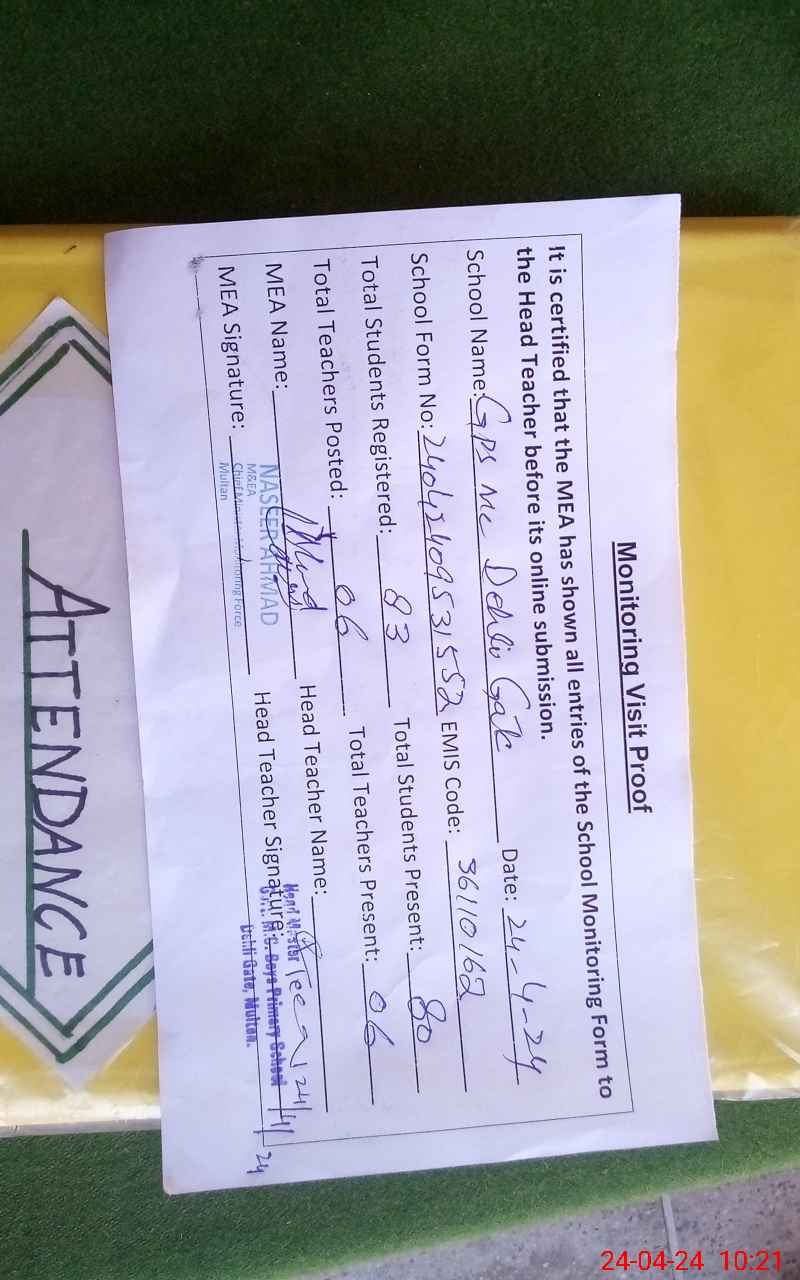 Monitoring Visit Proof
It is certified that the MEA has shown all entries of the School Monitoring Form to
the Head Teacher before its online submission.
School Name: GPS MC Dehli Gate Date: 24-4-24
School Form No: 24042409531552 EMIS Code: 36110162
Total Students Registered: 83 Total Students Present: 80
Total Teachers Posted: 06 Total Teachers Present: 06
MEA Name: Head Teacher Name:
NASEER AHMAD
M&EA
Chief Minister Monitoring Force
Multan
MEA Signature: Head Teacher Signature:
24/4/24
Head Master
M.C. Boys Primary School
Dehli Gate, Multan.
ATTENDANCE
24-04-24 10:21